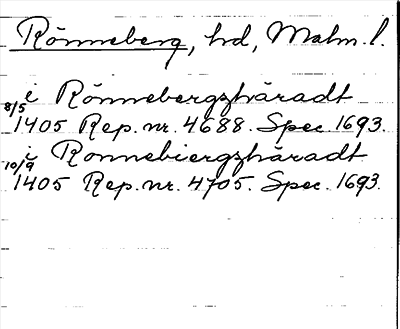 Rönneberg, hd, Malm. l.
i Rönnebergzhäradt
8/5 1405 Rep. nr. 4688. Spec. 1693.
i Ronnebiergzhäradt
10/9 1405 Rep. nr. 4705. Spec. 1693.